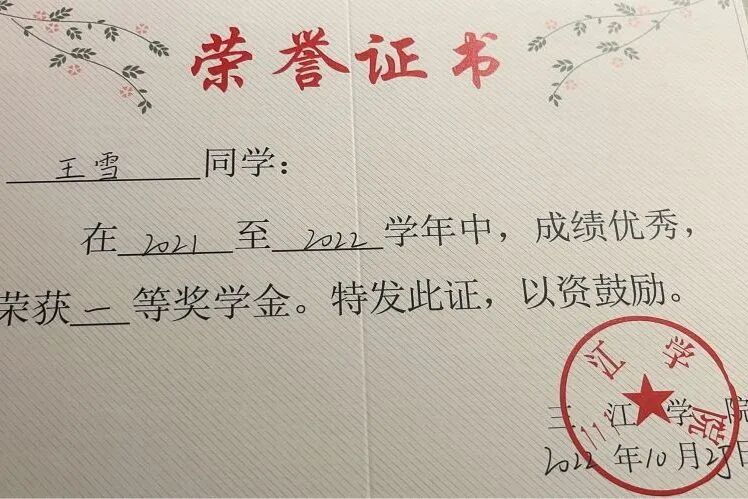 荣誉证书
王雪同学：
在2021至2022学年中，成绩优秀，
荣获一等奖学金。特发此证，以资鼓励。
江学院
三江学院
2022年10月25日